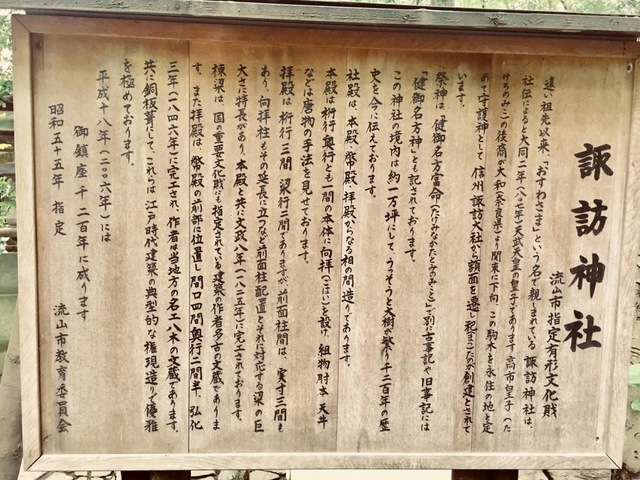 諏訪神社
流山市指定有形文化財
遠い祖先以来、「おすわさま」という名で親しまれている諏訪神社は、
社伝によると大同二年(八〇七年)天武天皇の皇子であります高市皇子(た
けちのみこ)の後裔が大和(奈良県)より関東に下向、この駒木を永住の地と定
めて守護神として、信州諏訪大社から額面を遷し祀まつたのが創建とされて
います。
祭神は「健御名方富命(たけみなかたとみのみこと)」で別に古事記や旧事記には
「健御名方神」とも記されております。
この神社の境内は約一万坪にして、うっそうと大樹が繁り千二百年の歴
史を今に伝えております。
社殿は、本殿・幣殿・拝殿からなる相の間造りであります。
本殿は桁行奥行とも一間の本体に向拝(ごはい)を設け、組物肘木天井
などは唐物の手法を見せております。
拝殿は桁行三間梁行二間でありますが、前面柱間は、実寸三間も
あり、向拝柱もその延長に立つなど前面柱配置とそれに対応する梁の巨
大さに特長があり、本殿と共に文政八年(一八二五年)に完工されております。
棟梁は、国の重要文化財にも指定されている建築の作者多古の文蔵でありま
す。また拝殿は、幣殿の前部に位置し間口四間奥行二間半、弘化
三年(一八四六年)に完工され、作者は当地方の名工八木の文蔵であります。
共に銅板葺にして、これらは江戸時代建築の典型的な権現造りで優雅
を極めております。
平成十八年(二〇〇六年)には
御鎮座千二百年に成ります
昭和五十五年 指定
流山市教育委員会